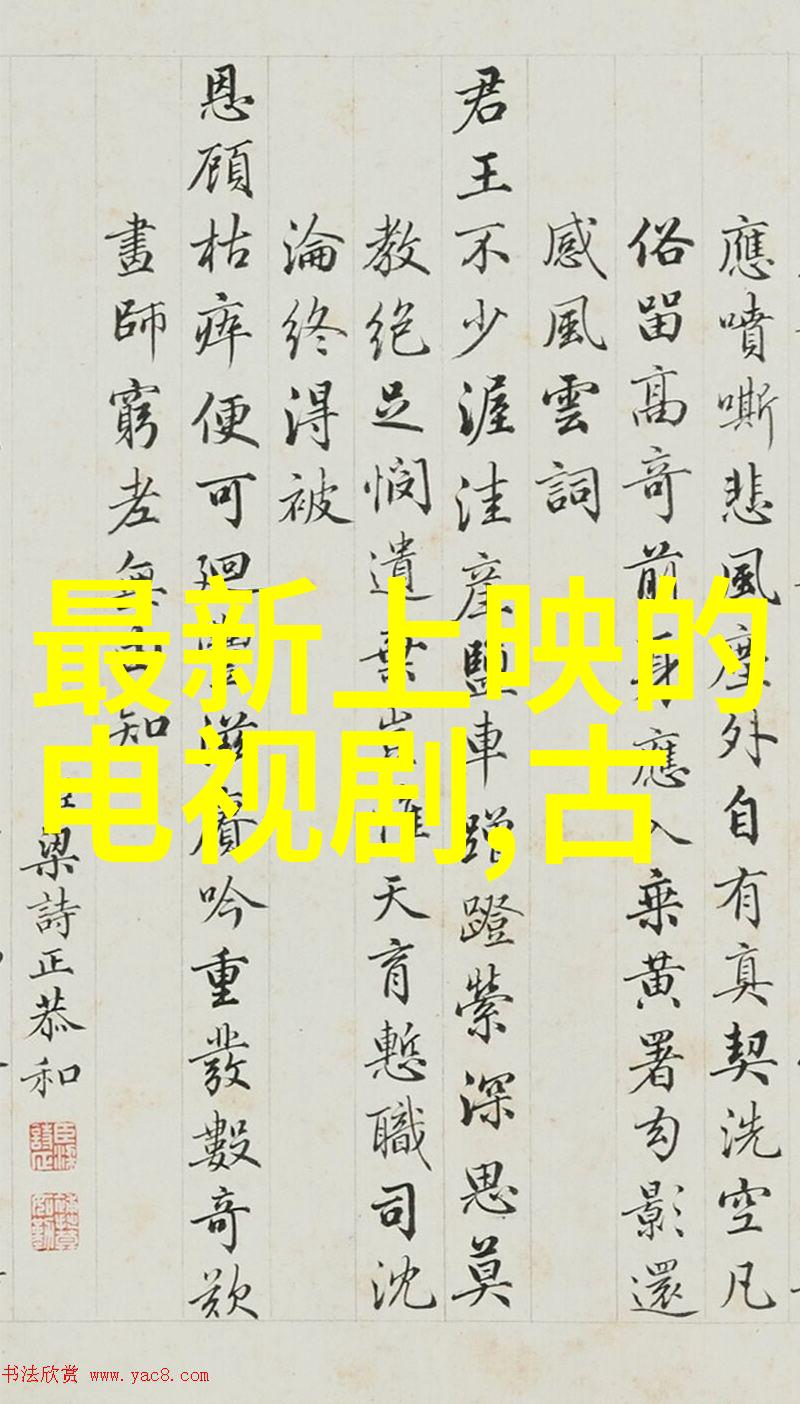 應噴嘶悲風塵外自有真契洗空凡
俗留高奇前身應入乘黃署勾影還
感風雲詞
君王不少渥洼產鹽車蹭蹬縈深思莫
教絕足憫遺棄 天育慙職司沈
淪終得被
恩顧枯瘁便可 滋賡吟重發數奇欵
畫師窮老無 知
梁詩正恭和
最新上映的
电视剧,古
书法欣赏 www.yac8.com